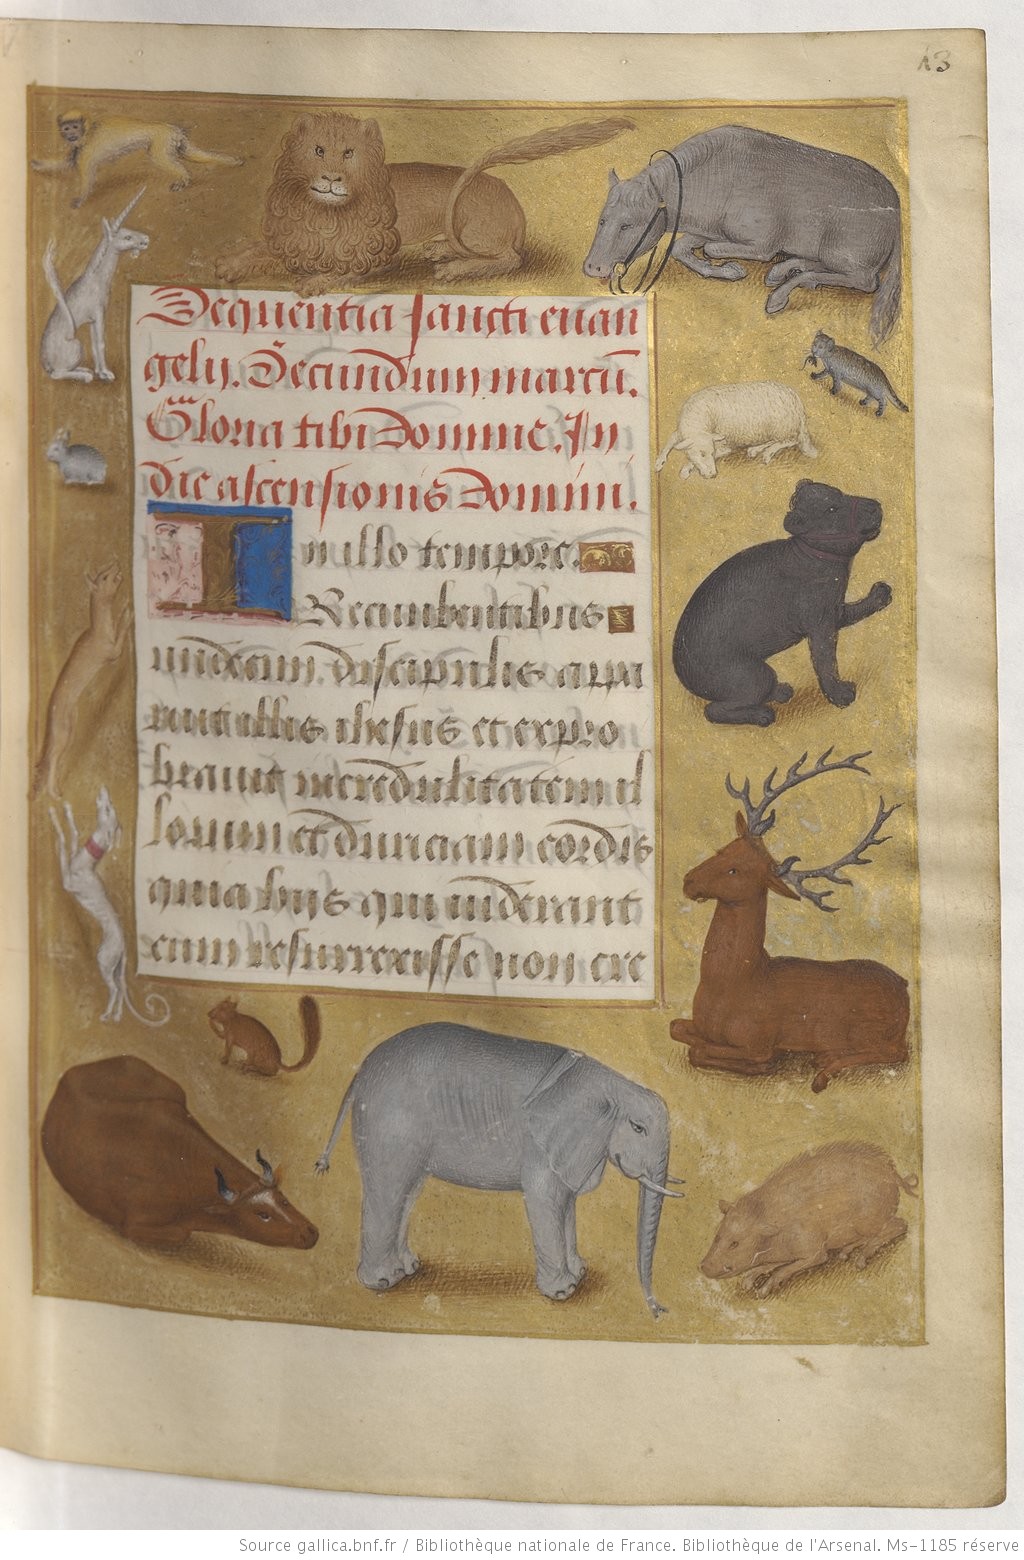 13
Sequentia sancti euan
gelij. Secundum marcū.
Gloria tibi Domine. In
die ascensionis Domini.
In illo tempore.
Recumbentibus
undecim discipulis appa
ruit illis ihesus et expro
brauit incredulitatem il
lorum et duriciam cordis
quia hijs qui uiderant
eum resurrexisse non cre
Source gallica.bnf.fr / Bibliothèque nationale de France. Bibliothèque de l'Arsenal. Ms-1185 réserve